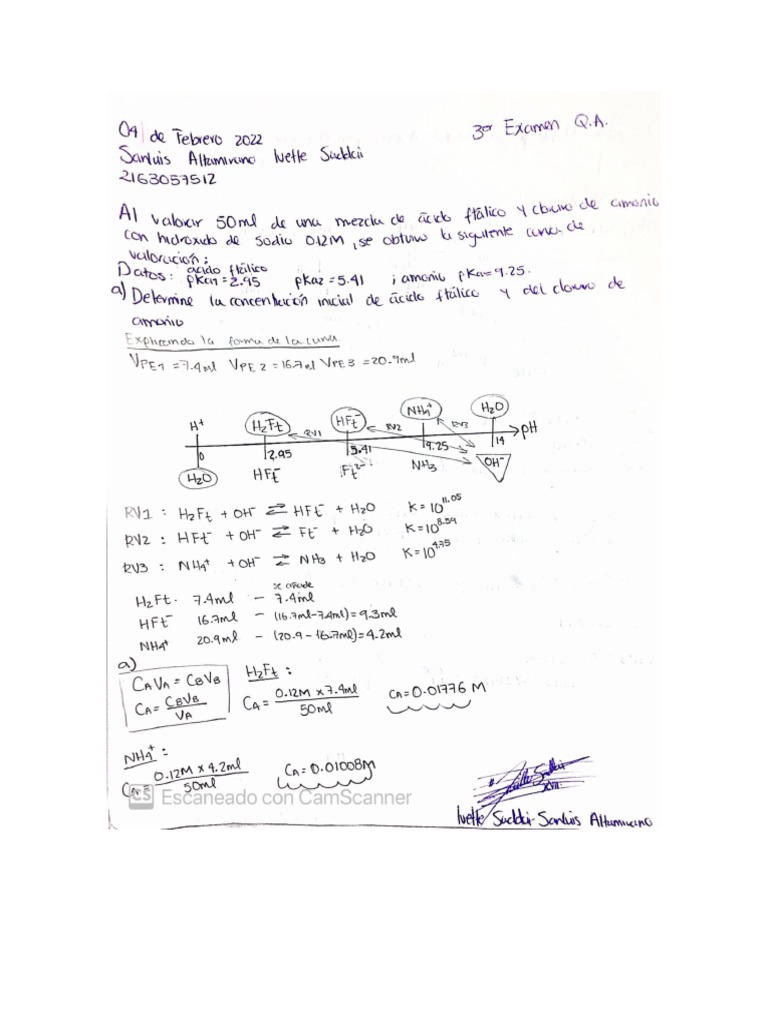 04 de Febrero 2022
3er Examen Q.A.
Sanluis Altamirano Ivette Saddai
2163057512
Al valorar 50ml de una mezcla de ácido ftálico y cloruro de amonio
con hidroxido de sodio 0.12M, se obtuvo la siguiente curva de
valoración:
Datos: ácido ftálico pKa1=2.95 pKa2=5.41 ; amonio pKa=9.25.
a) Determine la concentración inicial de ácido ftálico y del cloruro de
amonio
Explicando la forma de la curva.
VPE1=7.4ml VPE2=16.7ml VPE3=20.9ml
H+ H2Ft HFt- NH4+ H2O
RV1 RV2 RV3
pH
0 2.95 5.41 9.25 14
H2O HFt- Ft2- NH3 OH-
RV1: H2Ft + OH- ⇌ HFt- + H2O K=10^11.05
RV2: HFt- + OH- ⇌ Ft- + H2O K=10^8.59
RV3: NH4+ + OH- ⇌ NH3 + H2O K=10^4.75
se añade
H2Ft. 7.4ml - 7.4ml
HFt- 16.7ml - (16.7ml-7.4ml)=9.3ml
NH4+ 20.9ml - (20.9-16.7ml)=4.2ml
a)
CAVA = CBVB
CA = CBVB / VA
H2Ft:
CA = 0.12M x 7.4ml / 50ml
CA=0.01776 M
NH4+:
CA= 0.12M x 4.2ml / 50ml
CA=0.01008M
CS Escaneado con CamScanner
Ivette Saddai Sanluis Altamirano